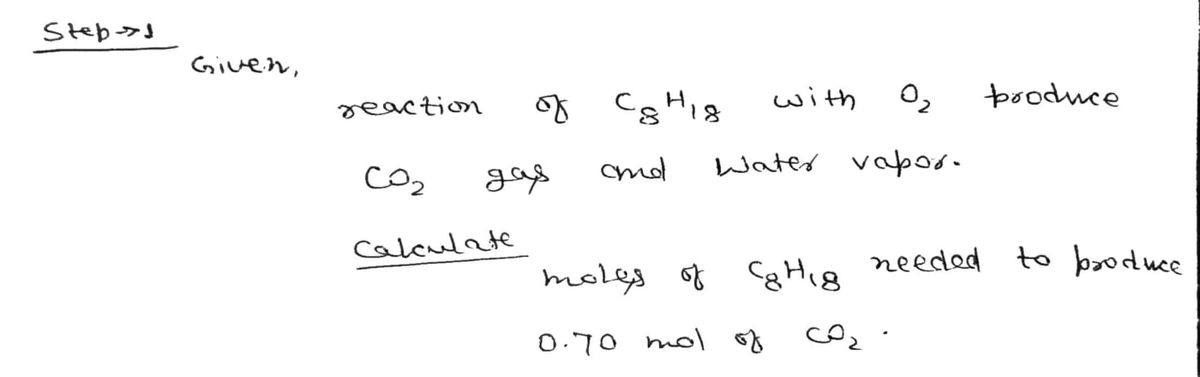 Step → 1
Given,
reaction of C₈H₁₈ with O₂ produce
CO₂ gas and Water vapor.
Calculate
moles of C₈H₁₈ needed to produce
0.70 mol of CO₂.